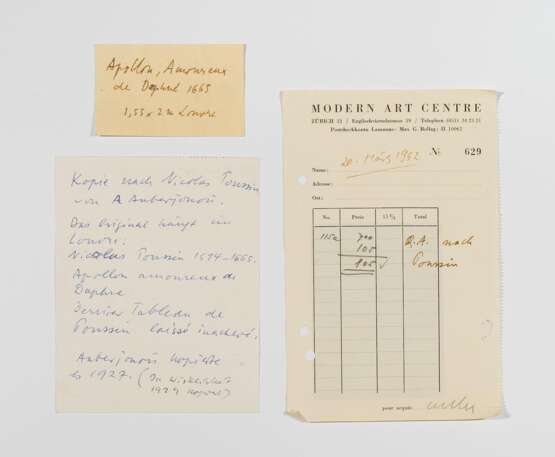 Apollon, Amoureux
de Daphné 1665
1,55 x 2 m Louvre
Kopie nach Nicolas Poussin
von A. Auberjonois.
Das Original hängt im
Louvre.
Nicolas Poussin 1594-1665.
Apollon amoureux de
Daphné
Dernier Tableau de
Poussin laissé inachevé.
Auberjonois kopierte
es 1927. (In Wirklichkeit
1929
MODERN ART CENTRE
ZÜRICH 21 / Englischviertelstrasse 39 / Telephon (051)
Postcheckkonto Lausanne: Max G. Bollag: II 10062
20. März 1962 № 629
Name:
Adresse:
Ort:
No. Preis 15% Total
115a 700 R. A. nach
105 Poussin
805
pour acquit: